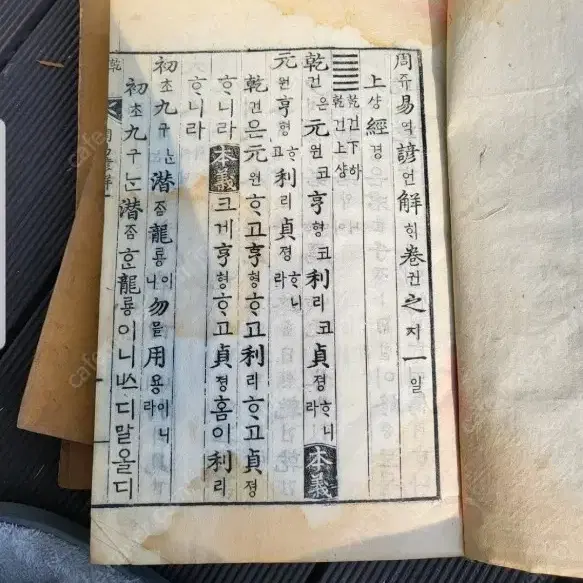 周쥬易역諺언解ᄒᆡ卷권之지一일
上샹經경
䷀乾건下하
乾건上샹
乾건은元원코亨형코利리코貞졍ᄒᆞ니라本義
元원亨형ᄒᆞ고利리貞졍ᄒᆞ니라
乾건은元원ᄒᆞ고亨형ᄒᆞ고利리ᄒᆞ고貞졍
ᄒᆞ니라本義크게亨형ᄒᆞ고貞졍홈이利리
ᄒᆞ니라
初초九구ᄂᆞᆫ潛ᄌᆞᆷ龍룡이니勿믈用용이니라
初초九구ᄂᆞᆫ潛ᄌᆞᆷᄒᆞᆫ龍룡이니ᄡᅳ디말올디
乾